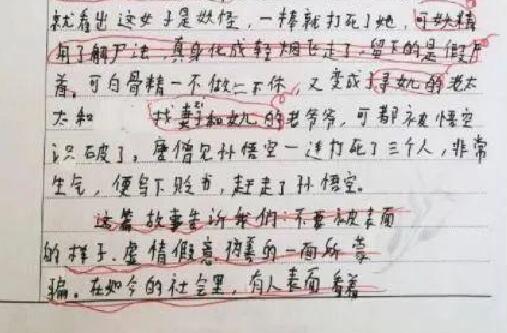 就看出这女子是妖怪，一棒就打死了她，可妖精
用了解尸法，真身化成轻烟飞走了，留下的是假尸
首。可白骨精一不做二不休，又变成了寻女儿的老太
太和 找妻子和女儿的老爷爷，可都被悟空
识破了，唐僧见孙悟空一连打死了三个人，非常
生气，便写下贬书，赶走了孙悟空。
这篇故事告诉我们不要被表面
的样子、虚情假意伪善的一面所蒙
骗。在如今的社会里，有人表面看着